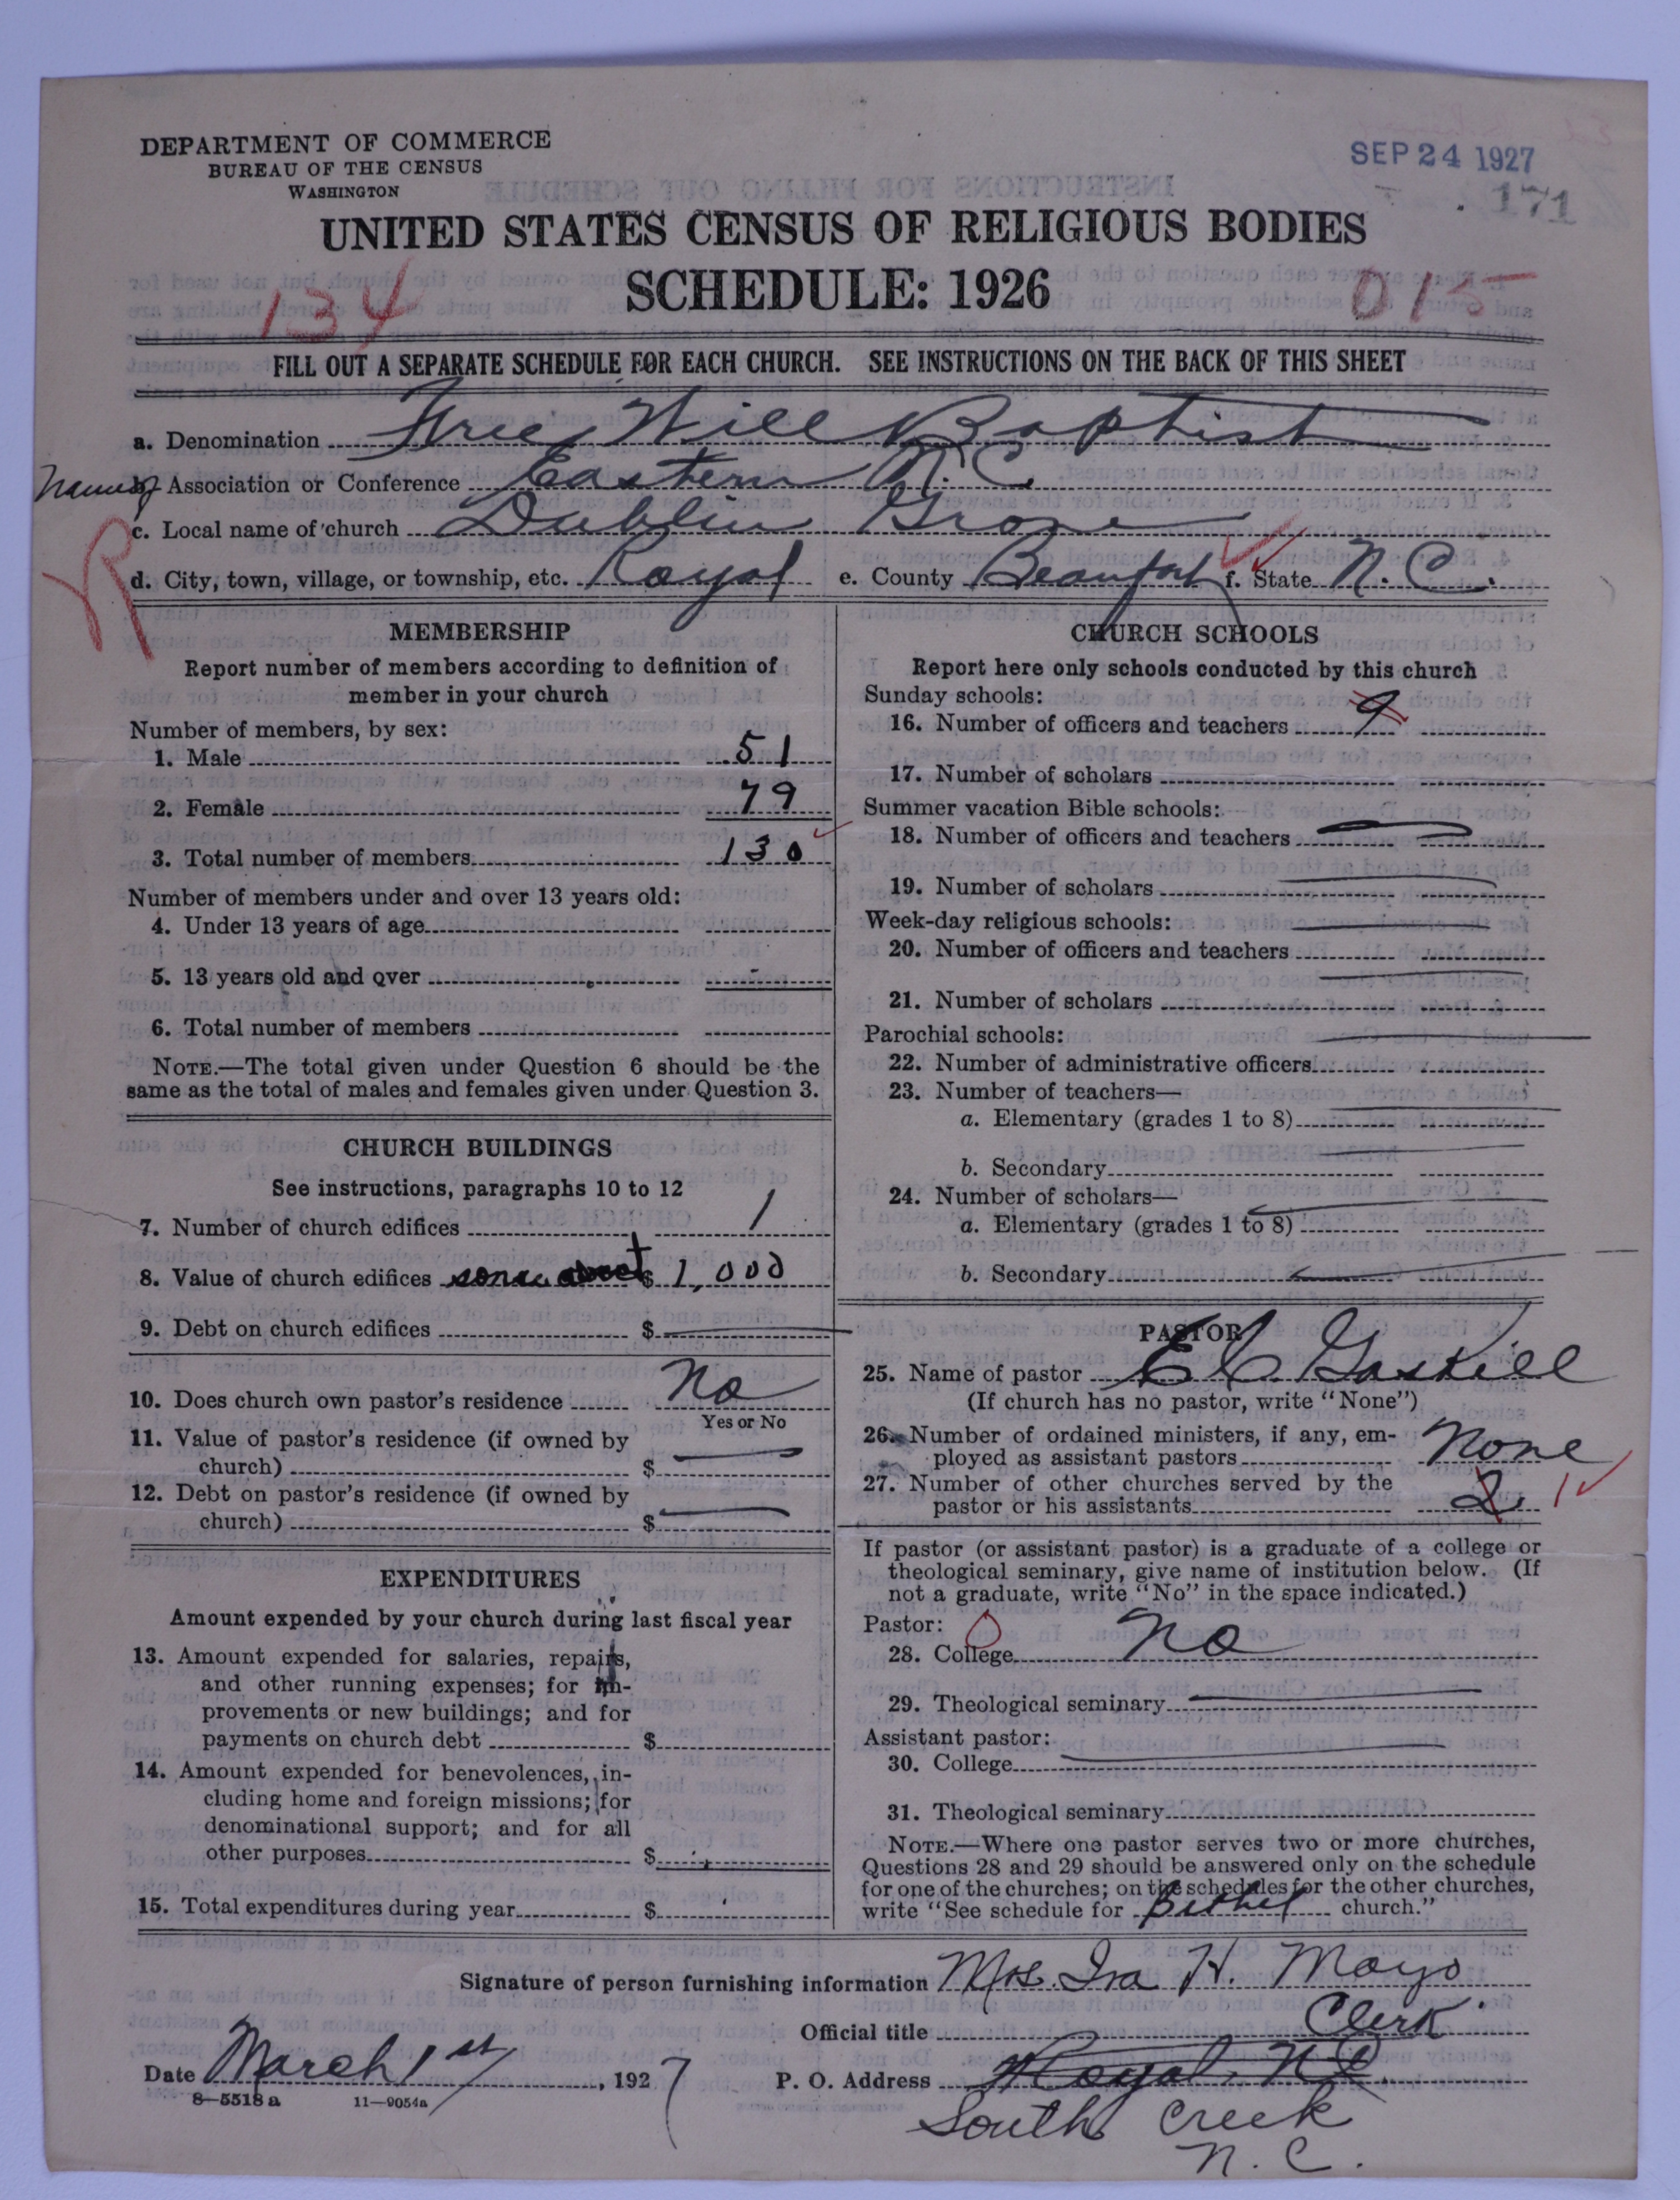 DEPARTMENT OF COMMERCE
BUREAU OF THE CENSUS
WASHINGTON
SEP 24 1927
171
UNITED STATES CENSUS OF RELIGIOUS BODIES
SCHEDULE: 1926
134
015
FILL OUT A SEPARATE SCHEDULE FOR EACH CHURCH. SEE INSTRUCTIONS ON THE BACK OF THIS SHEET
a. Denomination Free Will Baptist
Name of b. Association or Conference Eastern N.C.
c. Local name of church Dublin Grove
d. City, town, village, or township, etc. Royal e. County Beaufort f. State N.C.
MEMBERSHIP
Report number of members according to definition of
member in your church
Number of members, by sex:
1. Male 51
2. Female 79
3. Total number of members 130
Number of members under and over 13 years old:
4. Under 13 years of age
5. 13 years old and over
6. Total number of members
NOTE.—The total given under Question 6 should be the
same as the total of males and females given under Question 3.
CHURCH BUILDINGS
See instructions, paragraphs 10 to 12
7. Number of church edifices 1
8. Value of church edifices some about $ 1,000
9. Debt on church edifices $
10. Does church own pastor's residence No
Yes or No
11. Value of pastor's residence (if owned by
church) $
12. Debt on pastor's residence (if owned by
church) $
EXPENDITURES
Amount expended by your church during last fiscal year
13. Amount expended for salaries, repairs,
and other running expenses; for im-
provements or new buildings; and for
payments on church debt $
14. Amount expended for benevolences, in-
cluding home and foreign missions; for
denominational support; and for all
other purposes $
15. Total expenditures during year $
CHURCH SCHOOLS
Report here only schools conducted by this church
Sunday schools:
16. Number of officers and teachers 9
17. Number of scholars
Summer vacation Bible schools:
18. Number of officers and teachers
19. Number of scholars
Week-day religious schools:
20. Number of officers and teachers
21. Number of scholars
Parochial schools:
22. Number of administrative officers
23. Number of teachers—
a. Elementary (grades 1 to 8)
b. Secondary
24. Number of scholars—
a. Elementary (grades 1 to 8)
b. Secondary
PASTOR
25. Name of pastor E C Gaskill
(If church has no pastor, write "None")
26. Number of ordained ministers, if any, em-
ployed as assistant pastors None
27. Number of other churches served by the
pastor or his assistants 2 1
If pastor (or assistant pastor) is a graduate of a college or
theological seminary, give name of institution below. (If
not a graduate, write "No" in the space indicated.)
Pastor:
28. College No
29. Theological seminary
Assistant pastor:
30. College
31. Theological seminary
NOTE.—Where one pastor serves two or more churches,
Questions 28 and 29 should be answered only on the schedule
for one of the churches; on the schedules for the other churches,
write "See schedule for Bethel church."
Signature of person furnishing information Mrs. Iva H. Mayo
Official title Clerk
Date March 1st, 1927 P. O. Address Royal, N.C.
8—5518 a 11—9054a
South Creek
N. C.